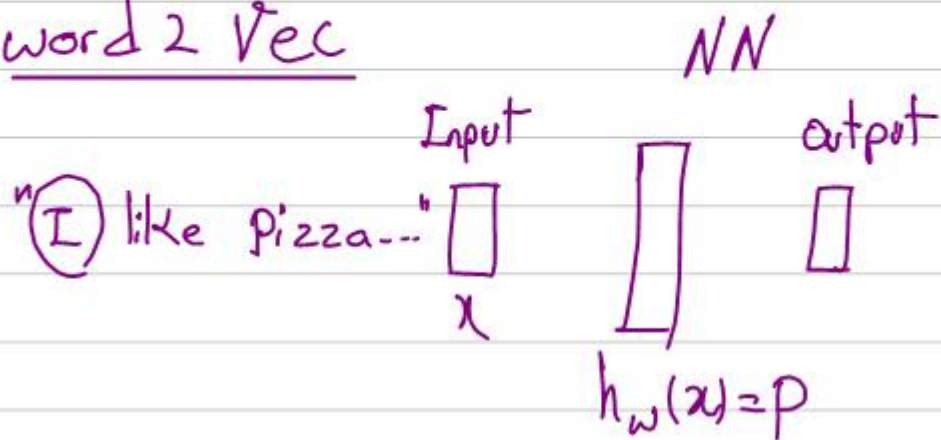 word 2 Vec
NN
Input
output
"I like pizza---"
x
h_w(x)=p